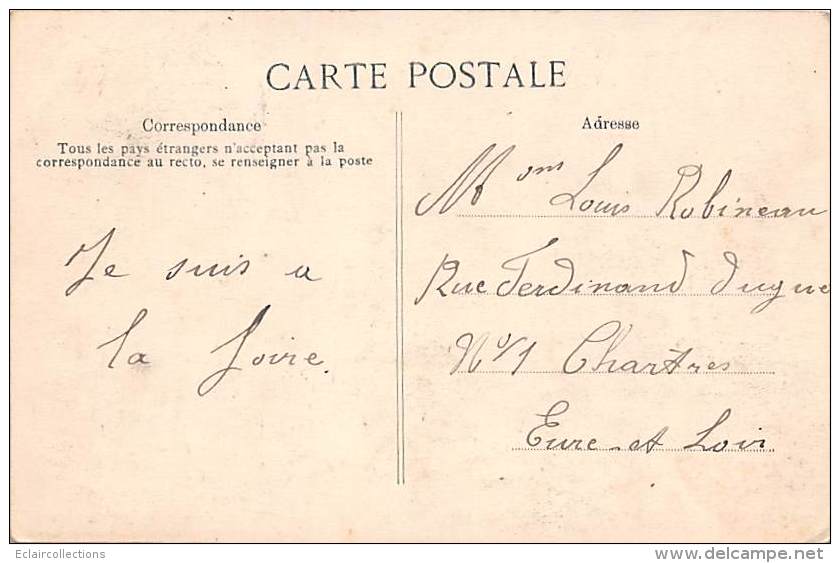 CARTE POSTALE
Correspondance
Tous les pays étrangers n'acceptant pas la
correspondance au recto, se renseigner à la poste
Je suis a
la foire.
Adresse
Mons Louis Robineau
Rue Ferdinand Dugué
No/1 Chartres
Eure et Loir
Eclaircollections
delcampe.net